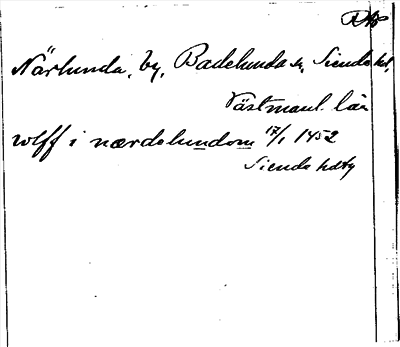 RAp
Närlunda, by, Badelunda sn, Siende hd,
Västmanl. län
wlff i nærdelundom 17/1 1452
Siende hdtg